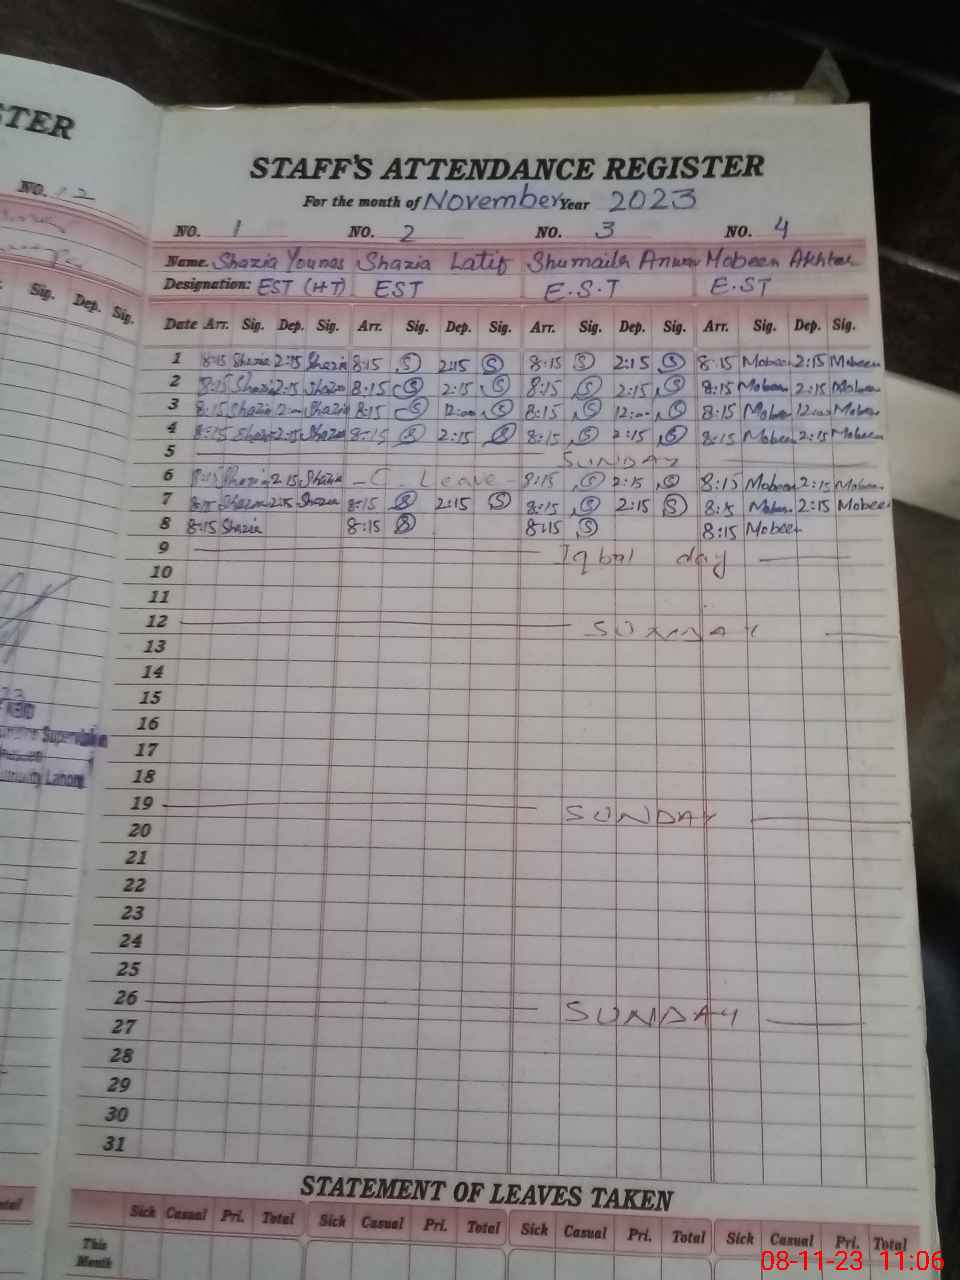 STER
NO. 12
Sig. Dep. Sig.
STAFF'S ATTENDANCE REGISTER
For the month of November Year 2023
NO. 1 NO. 2 NO. 3 NO. 4
Name. Shazia Younas Shazia Latif Shumaila Anwar Mobeen Akhtar
Designation: EST (HT) EST E.S.T E.ST
Date Arr. Sig. Dep. Sig. Arr. Sig. Dep. Sig. Arr. Sig. Dep. Sig. Arr. Sig. Dep. Sig.
1 8:15 Shazia 2:15 Shazia 8:15 S 2:15 S 8:15 S 2:15 S 8:15 Mobeen 2:15 Mobeen
2 8:15 Shazia 2:15 Shazia 8:15 S 2:15 S 8:15 S 2:15 S 8:15 Mobeen 2:15 Mobeen
3 8:15 Shazia 2:00 Shazia 8:15 S 12:00 S 8:15 S 12:00 S 8:15 Mobeen 12:00 Mobeen
4 8:15 Shazia 2:15 Shazia 8:15 S 2:15 S 8:15 S 2:15 S 8:15 Mobeen 2:15 Mobeen
5 SUNDAY
6 8:15 Shazia 2:15 Shazia C. Leave 8:15 S 2:15 S 8:15 Mobeen 2:15 Mobeen
7 8:15 Shazia 2:15 Shazia 8:15 S 2:15 S 8:15 S 2:15 S 8:15 Mobeen 2:15 Mobeen
8 8:15 Shazia 8:15 S 8:15 S 8:15 Mobeen
9 Iqbal day
10
11
12 SUNDAY
13
14
15
16
17
18
19 SUNDAY
20
21
22
23
24
25
26 SUNDAY
27
28
29
30
31
Lahore
STATEMENT OF LEAVES TAKEN
Sick Casual Pri. Total Sick Casual Pri. Total Sick Casual Pri. Total Sick Casual Pri. Total
This
Month
08-11-23 11:06